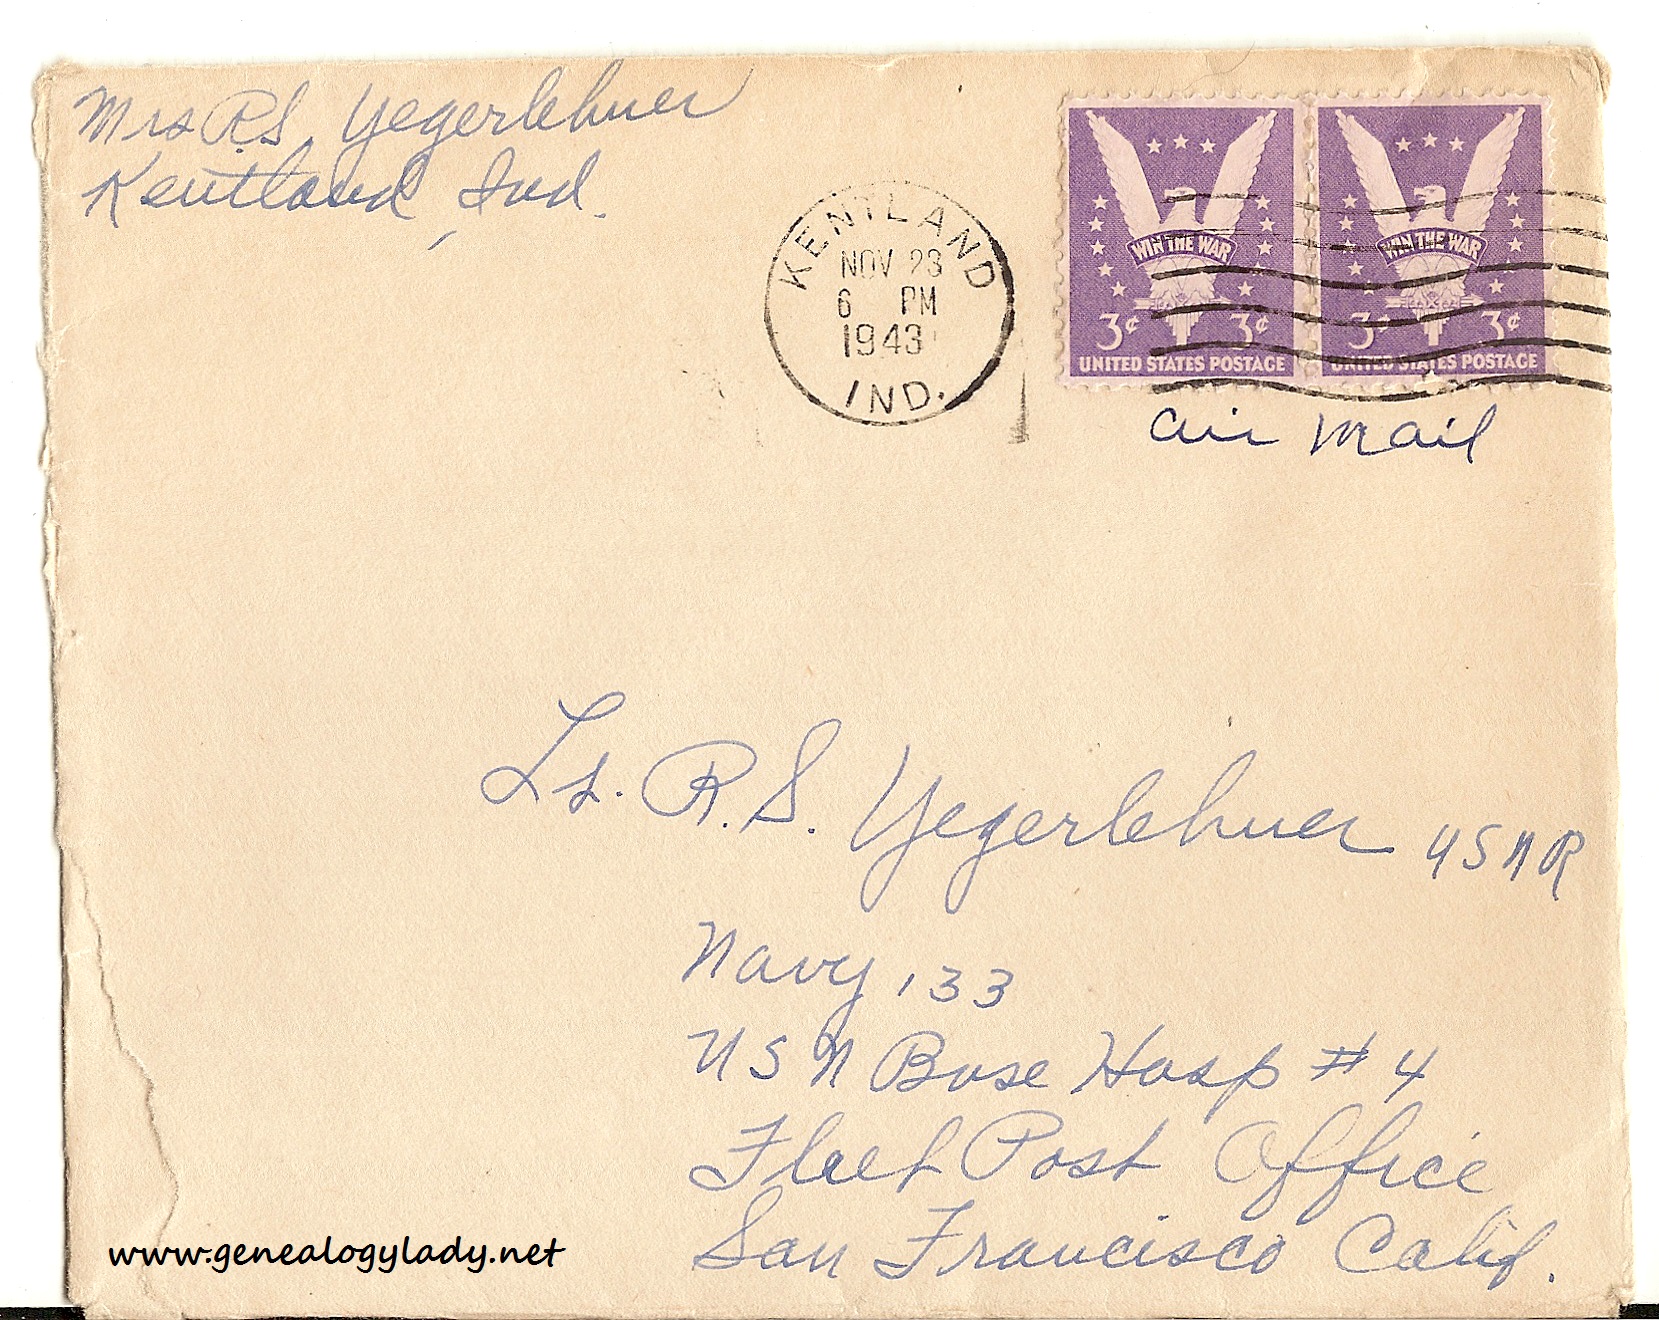 Mrs R.S. Yegerlehner
Kentland, Ind.
KENTLAND
NOV 23
6 PM
1943
IND.
WIN THE WAR
3¢ 3¢
UNITED STATES POSTAGE
WIN THE WAR
3¢ 3¢
UNITED STATES POSTAGE
air mail
Lt. R.S. Yegerlehner USNR
Navy 133
USN Base Hosp # 4
Fleet Post Office
San Francisco Calif.
www.genealogylady.net